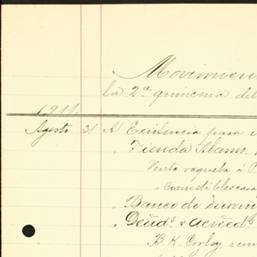 Movimien
la 2ª quincena del
1911
Agosto 31 A Existencia para
" Tienda Alam.
Venta raqueta á P
" comestibles
" Banco de Duran
" Deud.s & acreed.s
B. K. Corlay, su